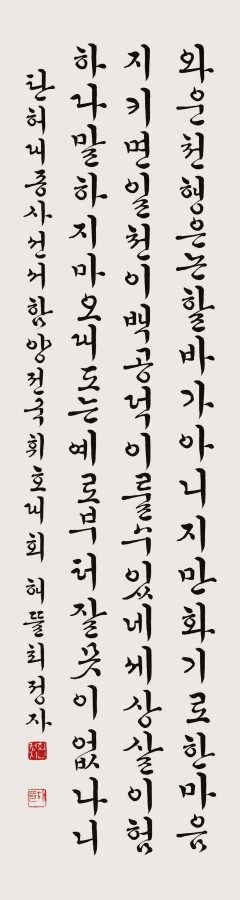 와운천행은논할바가아니지만화기로한마음
지키면일천이백공덕이룰수있네세상살이험
하나말하지마오대도는예로부터잘못이없나니
탄허대종사선서함양전국휘호대회 허뜰최정자